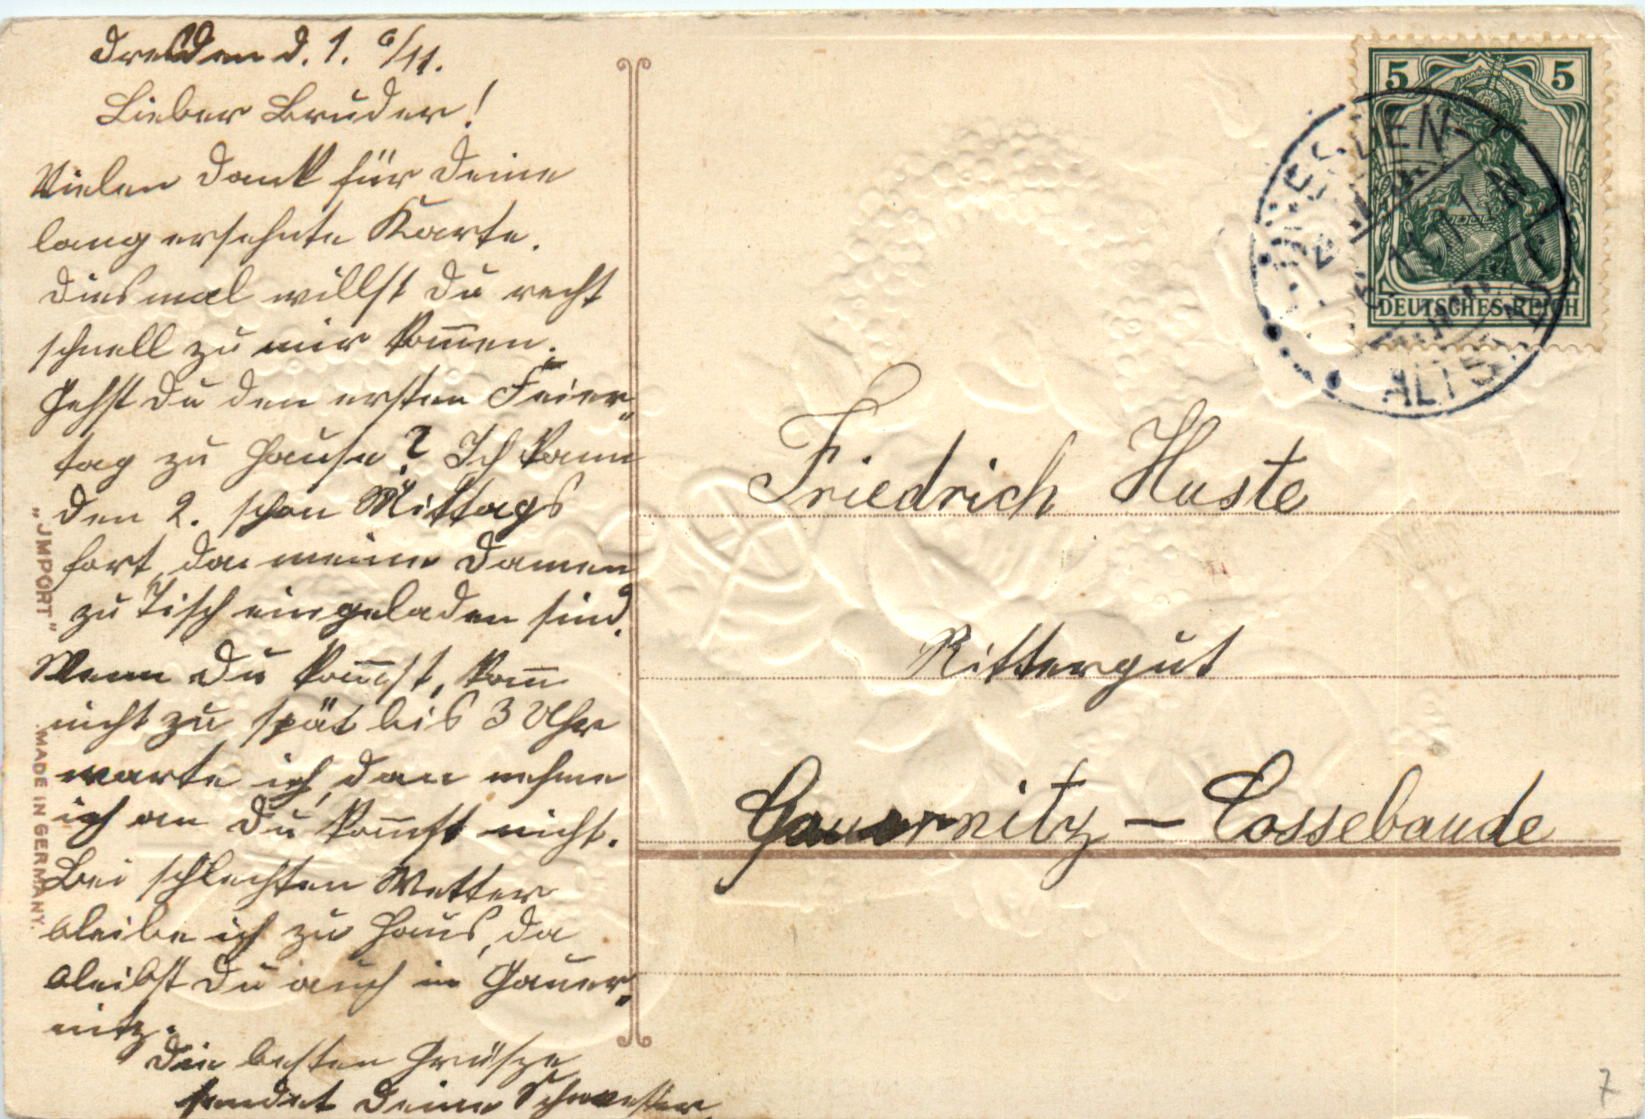 Dresden d. 1. 6/11.
Lieber Bruder!
Vielen Dank für Deine
lang ersehnte Karte.
Diesmal willst Du recht
schnell zu mir kom̅en.
Gehst Du den ersten Feier„
tag zu Hause? Ich kann
den 2. schon Mittags
fort, da meine Damen
zu Tisch eingeladen sind.
Wenn Du kom̅st, kom̅
nicht zu spät bis 3 Uhr
warte ich, dan nehme
ich an Du kom̅st nicht.
Bei schlechten Wetter
bleibe ich zu Haus, da
bleibst Du auch in Gauer„
nitz.
Die besten Grüsze
sendet Deine Schwester
„JMPORT“
MADE IN GERMANY.
5 5
DEUTSCHES REICH
DRESDEN
ALTST.
Friedrich Huste
Rittergut
Gauernitz – Cossebaude
7